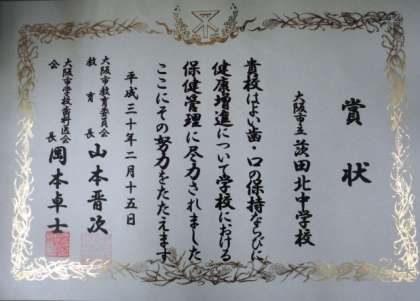 賞状
大阪市立 茨田北中学校
貴校はよい歯・口の保持ならびに
健康増進について学校における
保健管理に尽力されました
ここにその努力をたたえます
平成三十年二月十五日
大阪市教育委員会
教育長 山本晋次
大阪市学校歯科医会
会長 岡本卓士